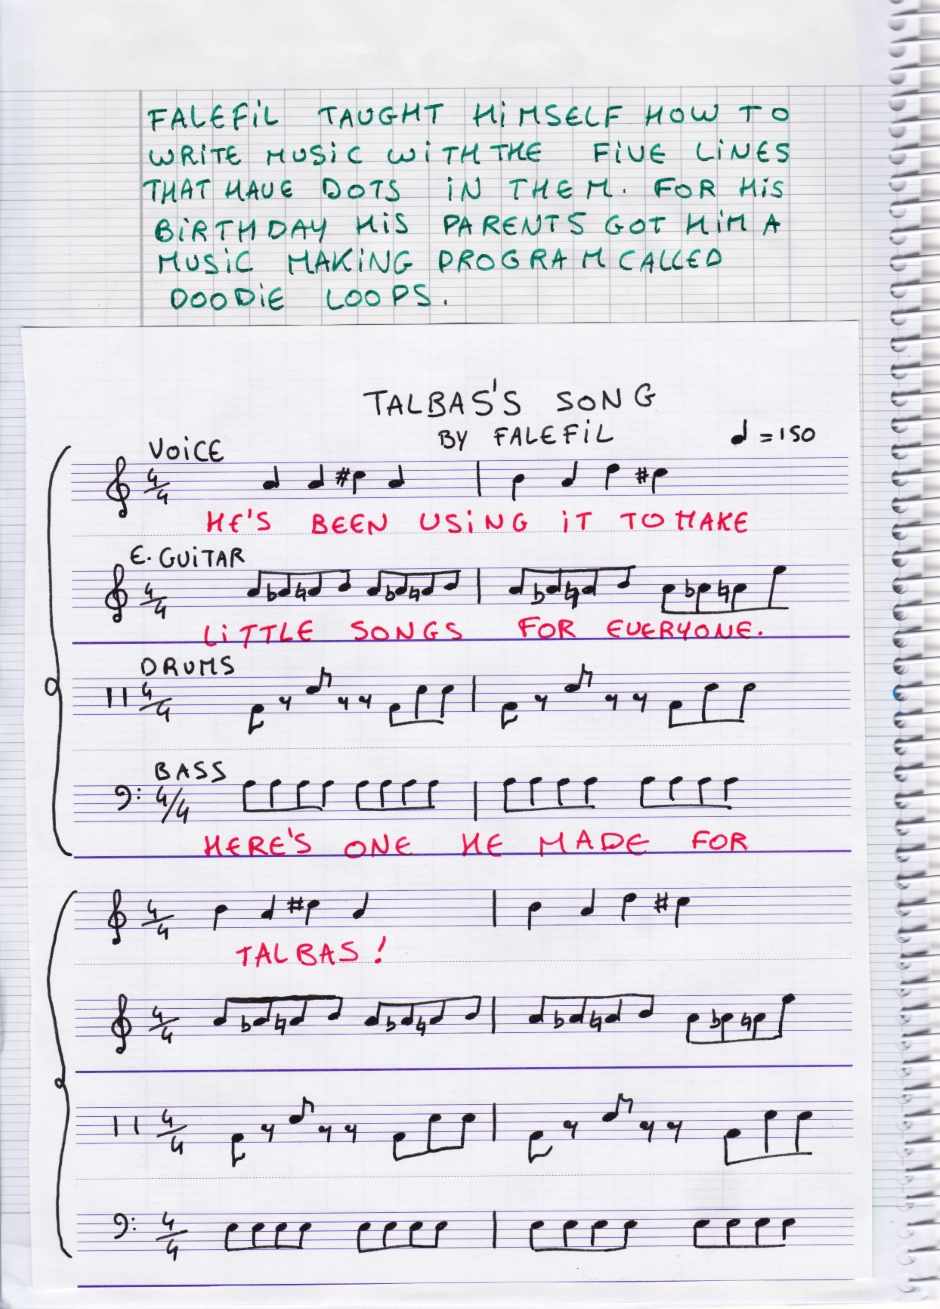 FALEFiL TAUGHT HiMSELF HOW TO
WRiTE MUSiC WiTH THE FIVE LiNES
THAT HAVE DOTS iN THEM. FOR HiS
BiRTHDAY HiS PARENTS GOT HiM A
MUSiC MAKiNG PROGRAM CALLED
DOODiE LOOPS.
TALBAS'S SONG
BY FALEFiL
♩ = 150
VOiCE
4/4
HE'S BEEN USiNG iT TO MAKE
E. GUiTAR
4/4
LiTTLE SONGS FOR EVERYONE.
DRUMS
4/4
BASS
4/4
HERE'S ONE HE MADE FOR
4/4
TALBAS!
4/4
4/4
4/4